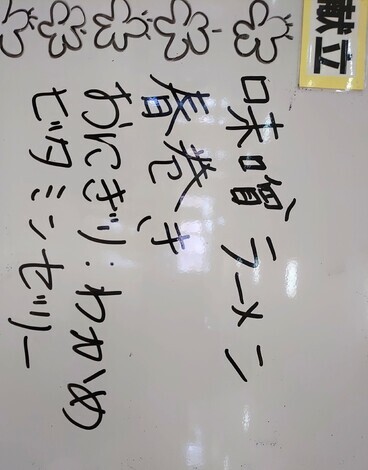 献立
味噌ラーメン
春巻き
おにぎり:わかめ
ビタミンゼリー